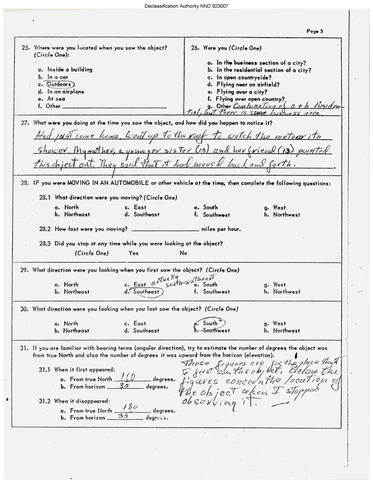 Declassification Authority NND 923007
Page 5
25. Where were you located when you saw the object?
(Circle One):
a. Inside a building
b. In a car
c. Outdoors
d. In an airplane
e. At sea
f. Other
26. Were you (Circle One)
a. In the business section of a city?
b. In the residential section of a city?
c. In open countryside?
d. Flying near an airfield?
e. Flying over a city?
f. Flying over open country?
g. Other Combination of a + b. Residen-
tial, but there is some business area
27. What were you doing at the time you saw the object, and how did you happen to notice it?
Had just come home, went up to the roof to watch the meteorite
shower. My mother, a younger sister (10) and her friend (13) pointed
this object out. They said that it had moved back and forth.
28. IF you were MOVING IN AN AUTOMOBILE or other vehicle at the time, then complete the following questions:
28.1 What direction were you moving? (Circle One)
a. North c. East e. South g. West
b. Northeast d. Southeast f. Southwest h. Northwest
28.2 How fast were you moving? miles per hour.
28.3 Did you stop at any time while you were looking at the object?
(Circle One) Yes No
29. What direction were you looking when you first saw the object? (Circle One)
a. North c. East actually e. South g. West
b. Northeast d. Southeast f. Southwest h. Northwest
30. What direction were you looking when you last saw the object? (Circle One)
a. North c. East e. South g. West
b. Northeast d. Southeast f. Southwest h. Northwest
31. If you are familiar with bearing terms (angular direction), try to estimate the number of degrees the object was
from true North and also the number of degrees it was upward from the horizon (elevation).
These figures are for the place that
31.1 When it first appeared: I first saw the object. Below the
a. From true North degrees. figures concern the location of
b. From horizon 30 degrees. the object when I stopped
31.2 When it disappeared: observing it.
a. From true North 180 degrees.
b. From horizon degrees.